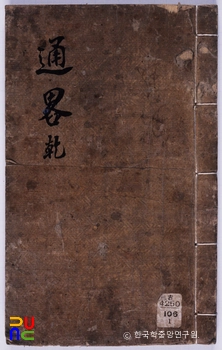 通畧
乾
4250
106
1
한국학중앙연구원